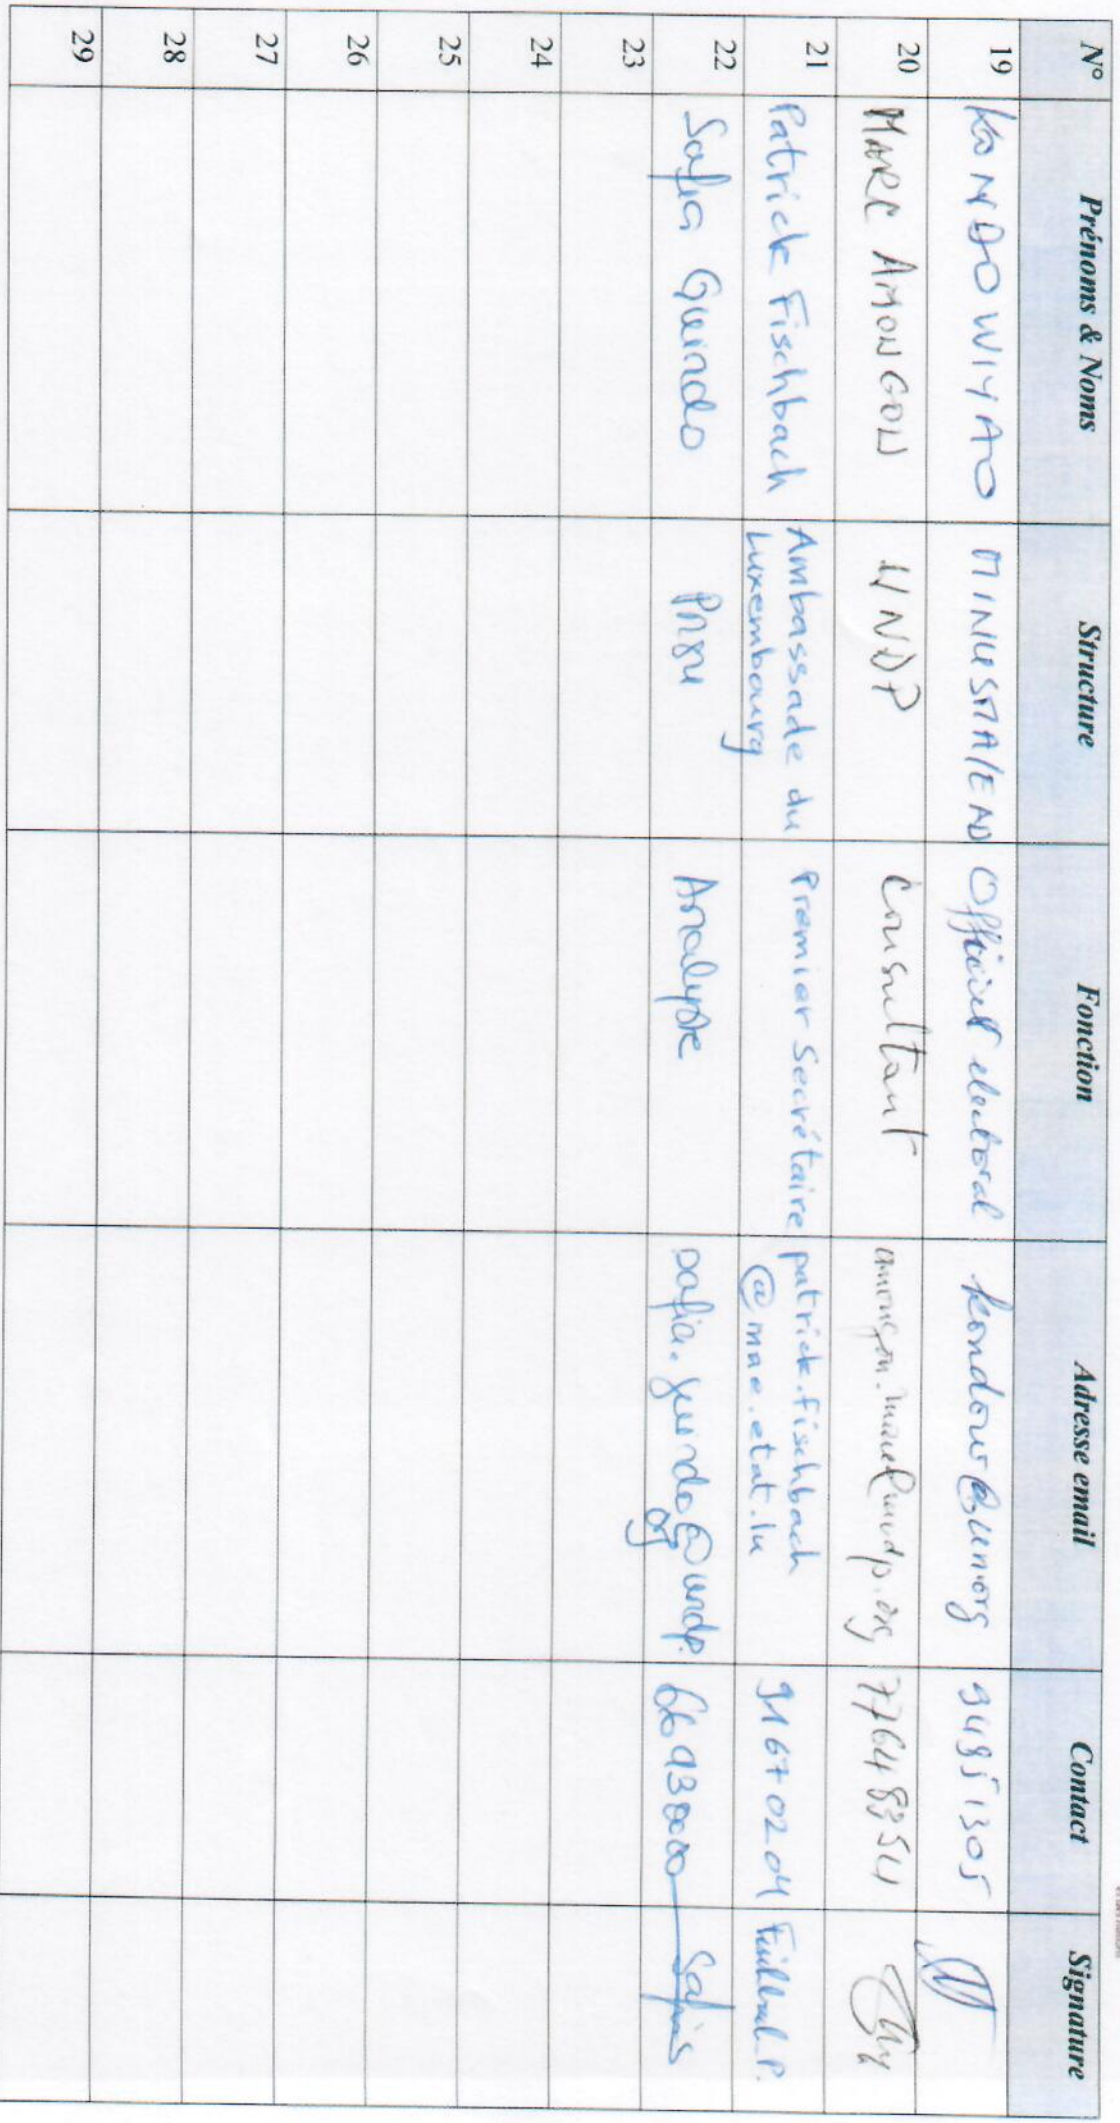 N° Prénoms & Noms Structure Fonction Adresse email Contact Signature
19 KONDO WIYAO MINUSMA/EAD Officier electoral kondow@un.org 94951305
20 MARC AMONGON UNDP Consultant amongon.marc@undp.org 77648354
21 Patrick Fischbach Ambassade du Luxembourg Premier Secrétaire patrick.fischbach@mae.etat.lu 91670204
22 Safia Guindo Analyste safia.guindo@undp.org 66930000 Safia
23
24
25
26
27
28
29